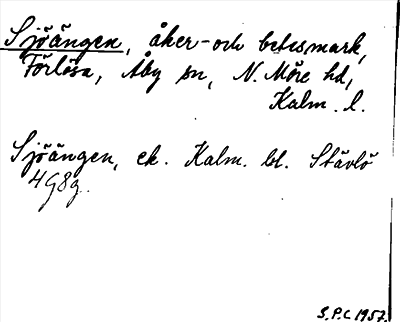 Sjöängen, åker- och betesmark,
Förlösa, Åby sn, N. Möre hd,
Kalm. l.
Sjöängen, ek. Kalm. bl. Stävlö
4G8g.
S.P.C 1957.